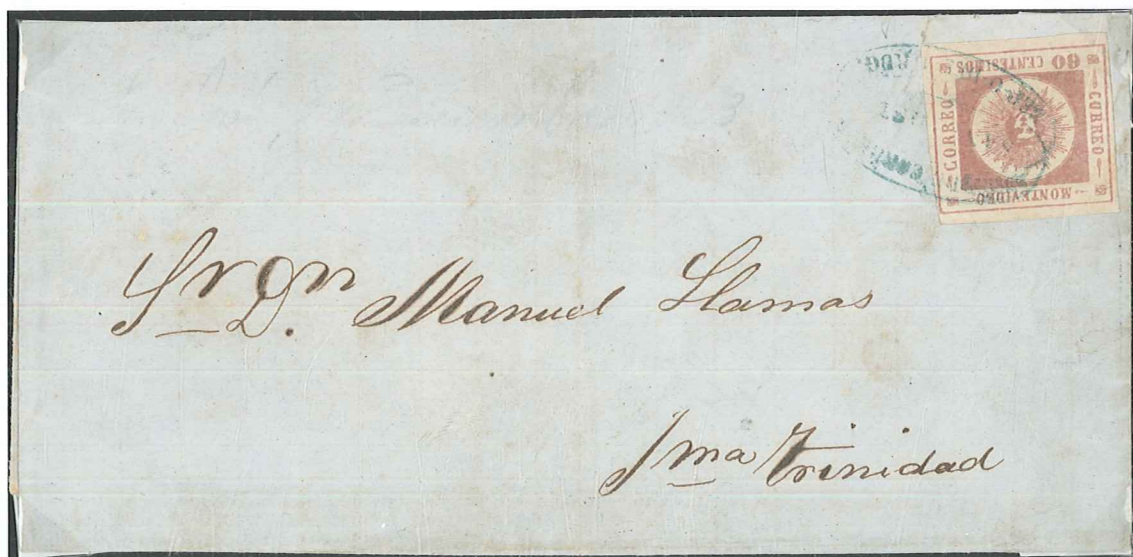 60 CENTESIMOS
CORREO
CORREO
MONTEVIDEO
Sr Dn. Manuel Llamas
Sma Trinidad